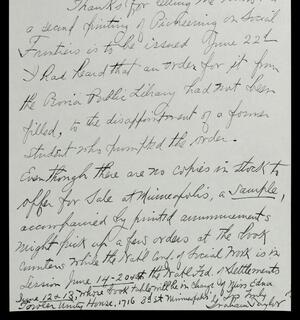 Thanks for telling me
a second printing of Pioneering on Social
Frontiers is to be issued June 22nd
I had heard that an order for it from
the Peoria Public Library had not been
filled, to the disappointment of a former
student who prompted the order.
Even though there are no copies in stock to
offer for sale at Minneapolis, a sample,
accompanied by printed announcements
might pick up a few orders at the book
counters while the Natl Conf. of Social Work is in
session June 14-20 & the Natl Fed. of Settlements
June 12-13, whose book table will be in charge of Miss Edna
House, 1716 3rd St Minneapolis.
Graham Taylor